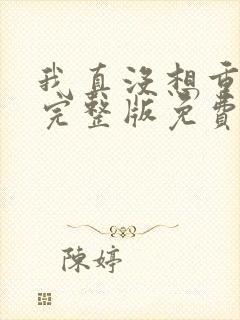 我真没想重
完整版免費
陳婷